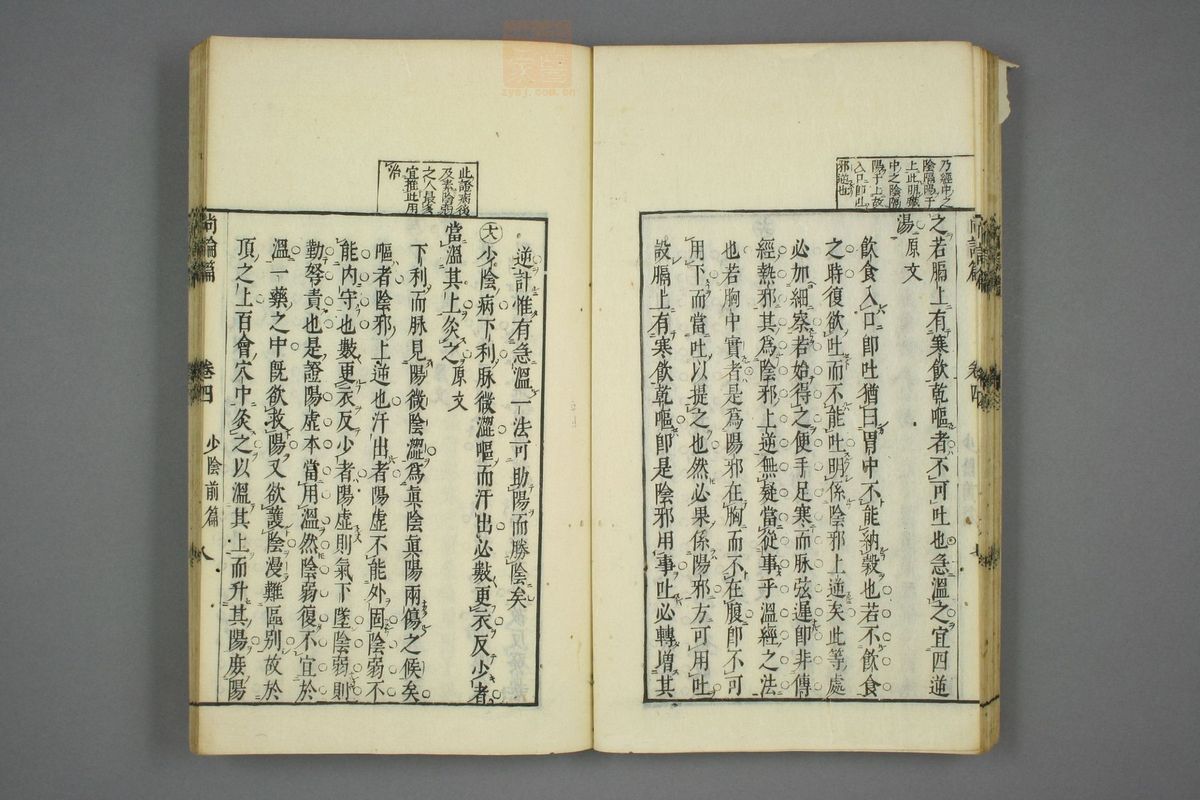 乃經中之
陰隔陽于
上此明藏
中之陰隔
陽于上故
入口即吐
邪逆也
之若膈上有寒飲乾嘔者不可吐也急溫之宜四逆
湯 原文
飲食入口卽吐猶曰胃中不能納穀也若不飲食
之時復欲吐而不能吐明係陰邪上逆矣此等處
必加細察若始得之便手足寒而脉弦遲卽非傳
經熱邪其爲陰邪上逆無疑當從事乎溫經之法
也若胸中實者是爲陽邪在胸而不在腹卽不可
用下而當吐以提之也然必果係陽邪方可用吐
設膈上有寒飲乾嘔卽是陰邪用事吐必轉增其
此證病後
及素陰弱
之人最多
宜推此用
治
逆計惟有急溫一法可助陽而勝陰矣
少陰病下利脉微澀嘔而汗出必數更衣反少者
當溫其上灸之 原文
下利而脉見陽微陰澀爲眞陰眞陽兩傷之候矣
嘔者陰邪上逆也汗出者陽虛不能外固陰弱不
能內守也數更衣反少者陽虛則氣下墜陰弱則
勤弩責也是證陽虛本當用溫然陰弱復不宜於
溫一藥之中旣欲救陽又欲護陰漫難區別故於
頂之上百會穴中灸之以溫其上而升其陽庶陽
尚論篇 卷四 少陰前篇 八
zysj.com.cn